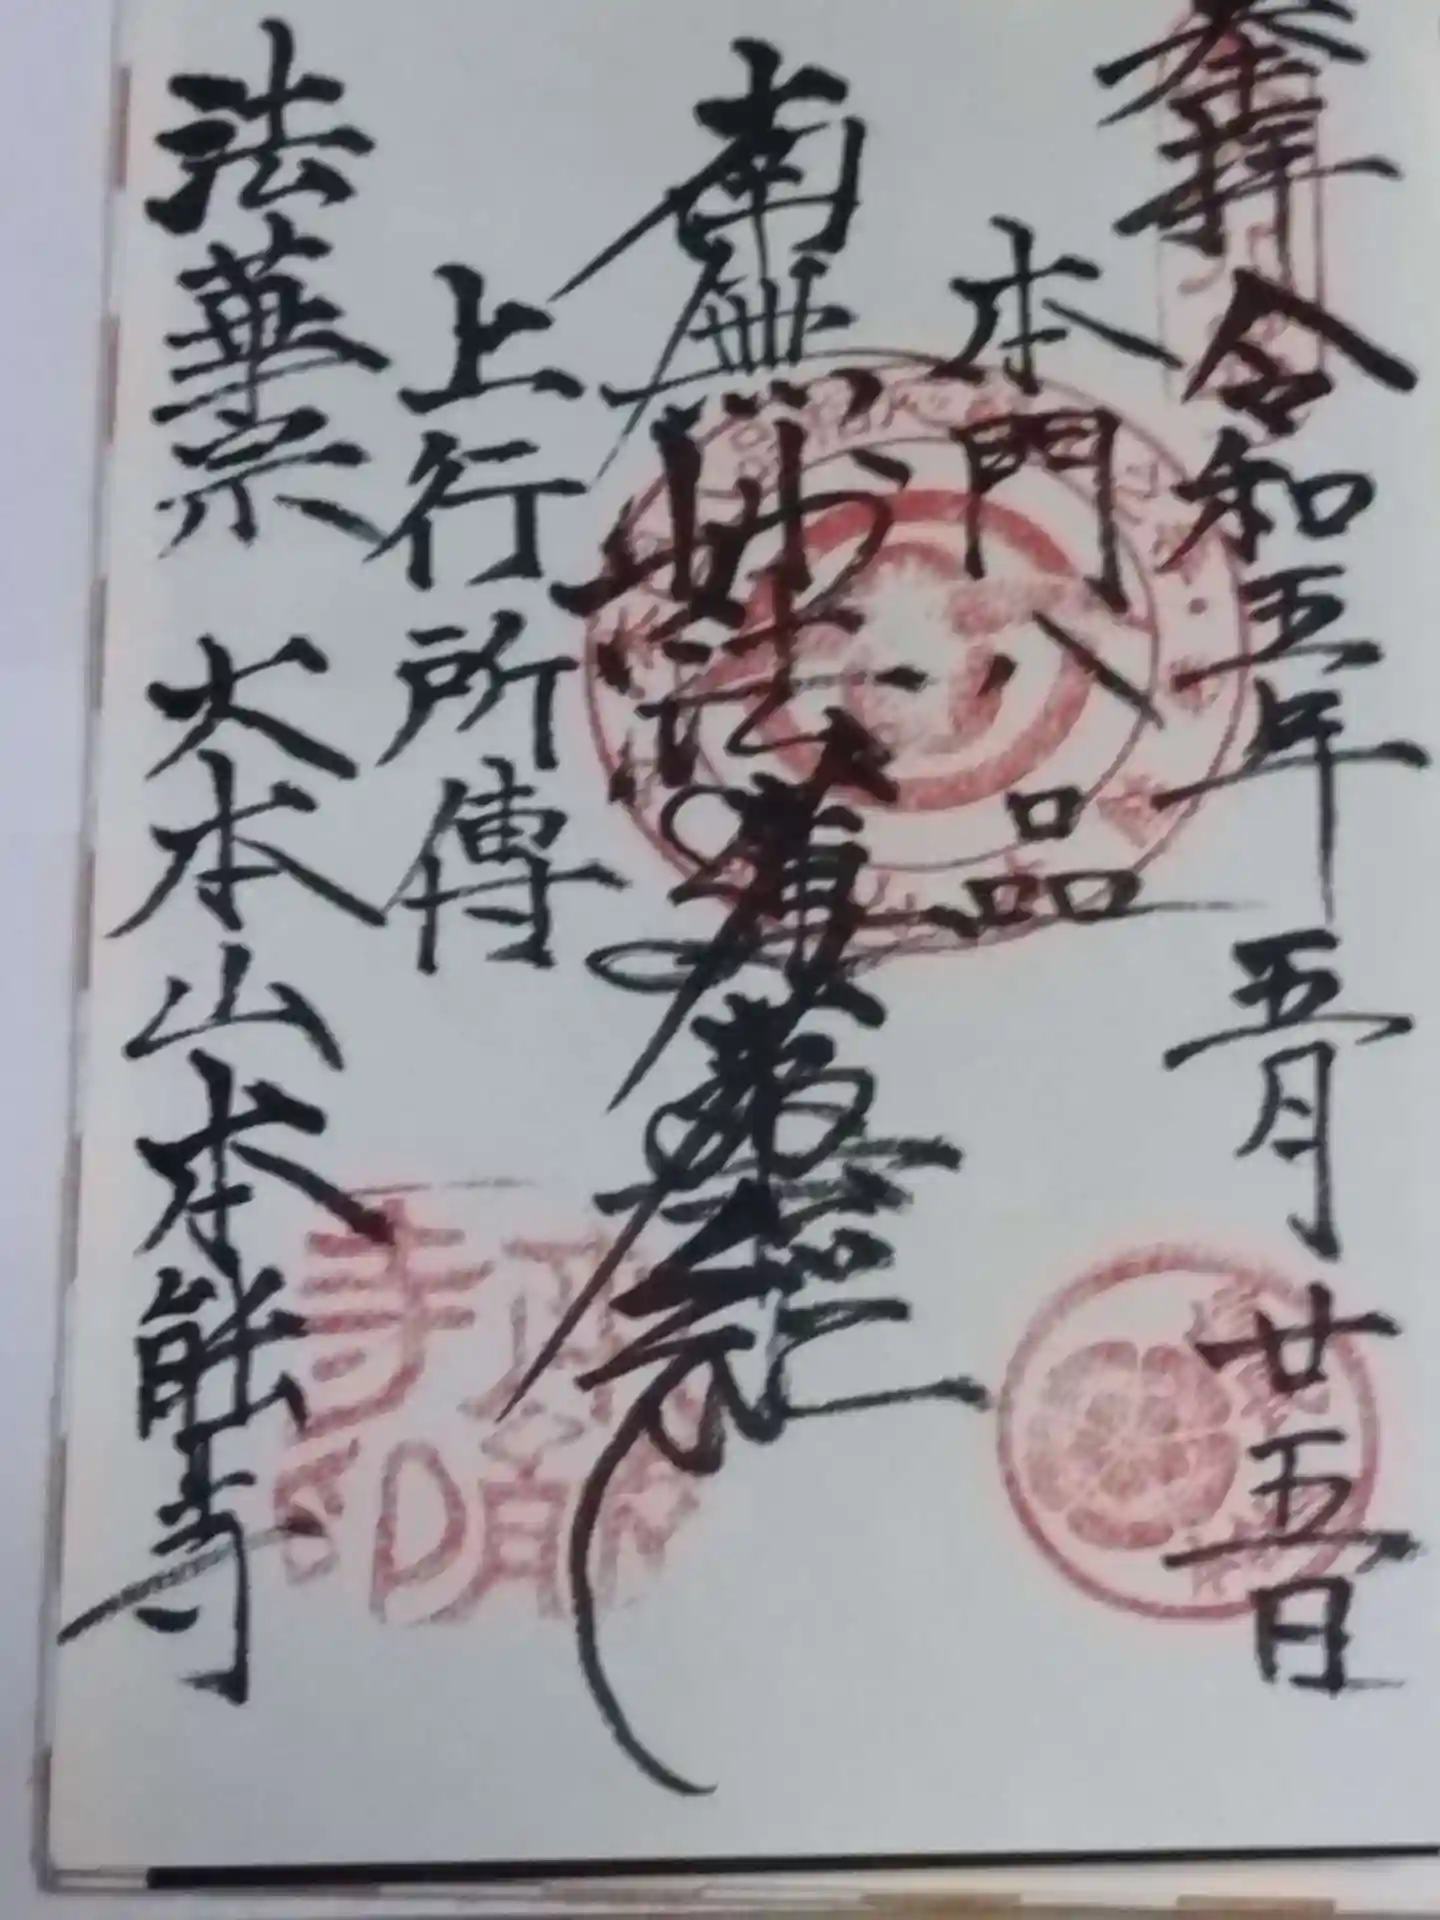 奉拝 令和五年 五月 廿五日
本門八品
南無妙法蓮華経
上行所傳
法華宗 大本山本能寺